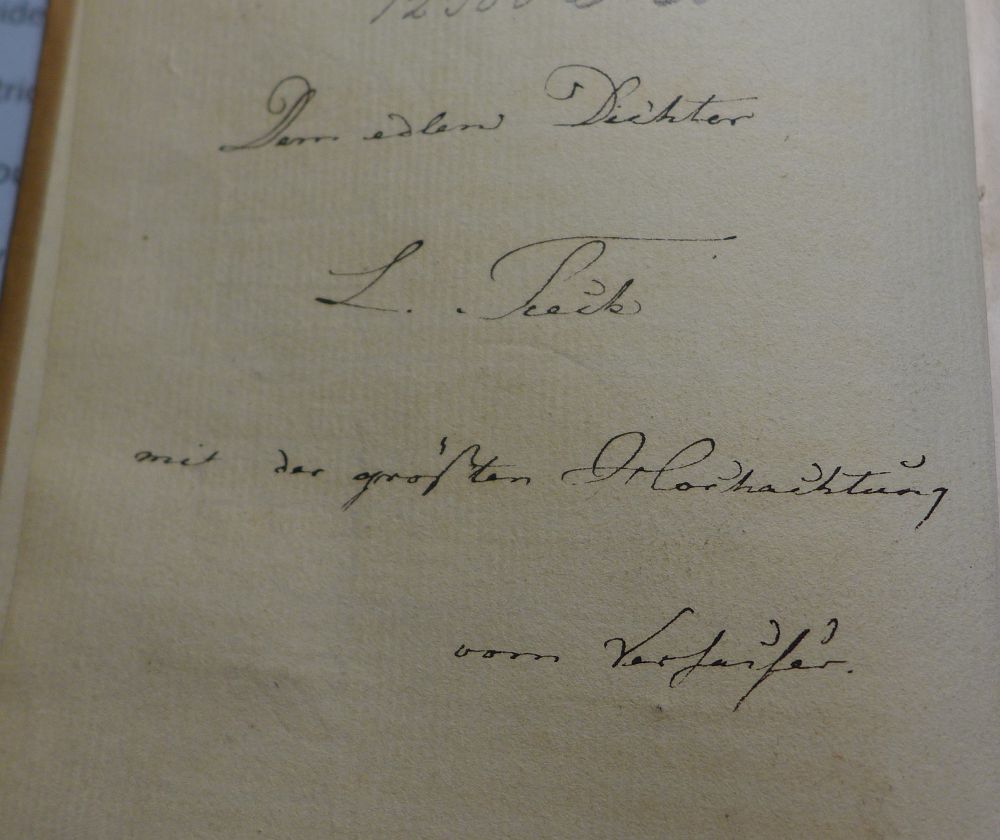 Dem edlen Dichter
L. Tieck
mit der größten Hochachtung
vom Verfasser.